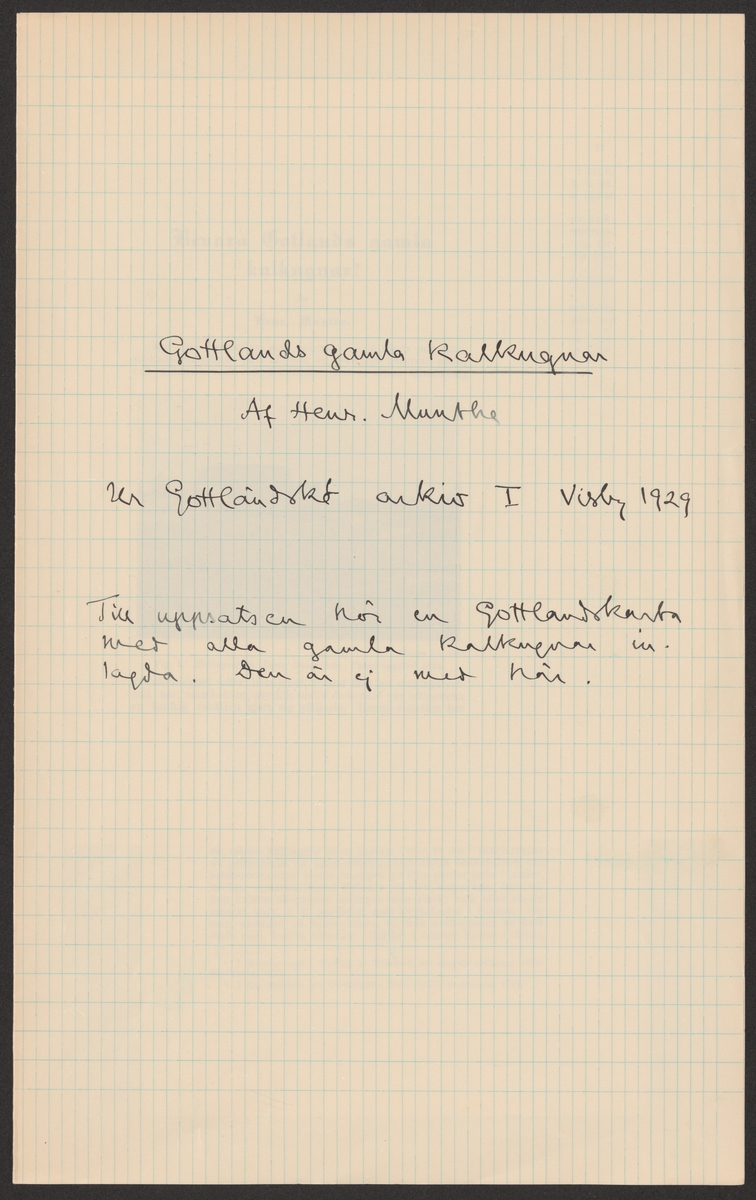 Gottlands gamla kalkugnar
Af Henr. Munthe
Ur Gottländskt arkiv I Visby 1929
Till uppsatsen hör en Gottlandskarta
med alla gamla kalkugnar in-
lagda. Den är ej med här.